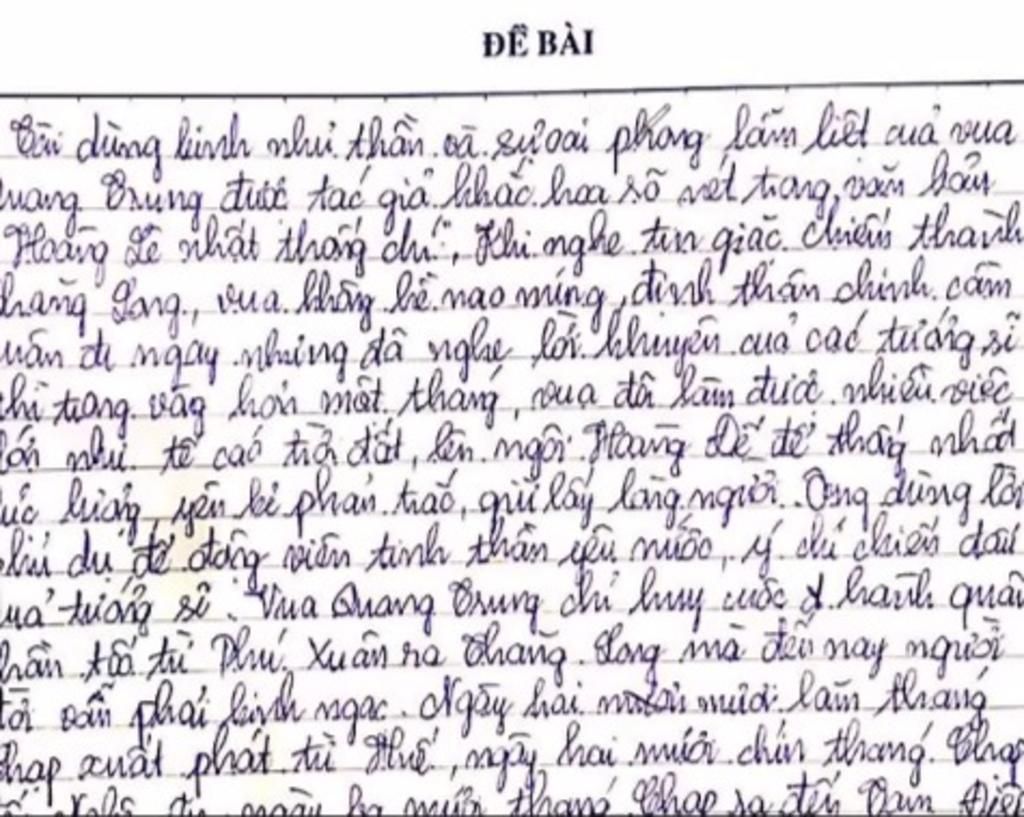 ĐỀ BÀI
Tài dùng binh như thần và sự oai phong lẫm liệt của vua
Quang Trung được tác giả khắc hoạ rõ nét trong văn bản
"Hoàng Lê nhất thống chí". Khi nghe tin giặc chiếm thành
Thăng Long, vua không hề nao núng, định thân chinh cầm
quân đi ngay nhưng đã nghe lời khuyên của các tướng sĩ
chỉ trong vòng hơn một tháng, vua đã làm được nhiều việc
lớn như tế cáo trời đất, lên ngôi Hoàng Đế để thống nhất
lực lượng, yên kẻ phản trắc, giữ lấy lòng người. Ông dùng lời
phủ dụ để động viên tinh thần yêu nước, ý chí chiến đấu
của tướng sĩ. Vua Quang Trung chỉ huy cuộc hành quân
thần tốc từ Phú Xuân ra Thăng Long mà đến nay người
đời vẫn phải kinh ngạc. Ngày hai mươi lăm tháng
Chạp xuất phát từ Huế, ngày hai mươi chín tháng Chạp
ngày ba mươi tháng Chạp ra đến Tam Điệp